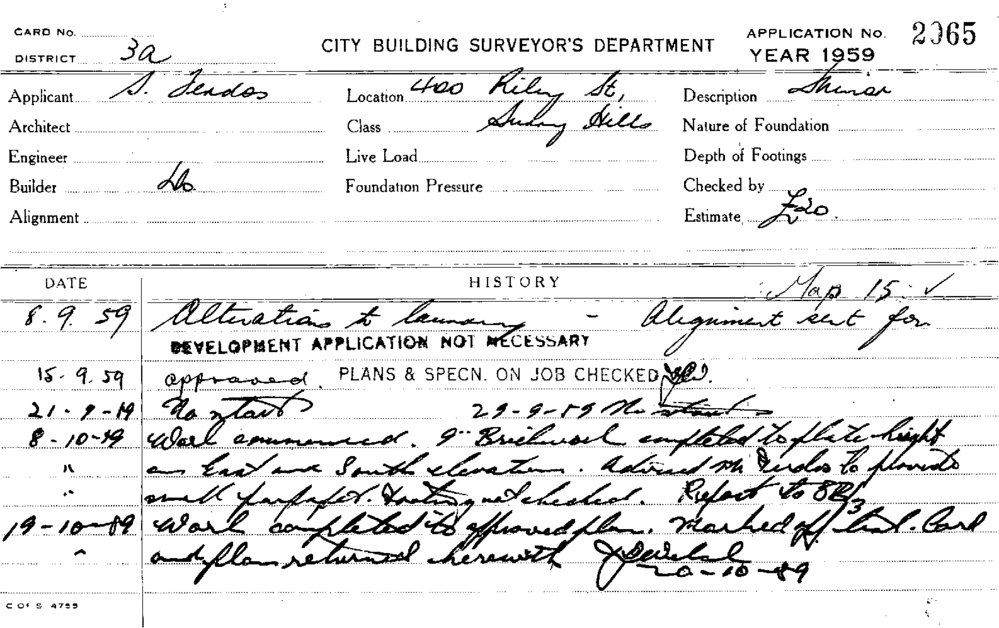 CARD No.
DISTRICT 3a
CITY BUILDING SURVEYOR'S DEPARTMENT
APPLICATION No. 2065
YEAR 1959
Applicant S. Location 400 Riley St, Description Minor
Architect Class Surry Hills Nature of Foundation
Engineer Live Load Depth of Footings
Builder Do Foundation Pressure Checked by
Alignment Estimate £20.
DATE HISTORY Map 15. ✓
8. 9. 59 Alterations to laundry - Alignment sent for
DEVELOPMENT APPLICATION NOT NECESSARY
15. 9. 59 approved. PLANS & SPECN. ON JOB CHECKED
21-9-59 No start 29-9-59 No start
8-10-59 Work commenced. 9" Brickwork completed to plate height
" on East and South elevation. Advised Mr to provide
" small parapet. Footing not checked. Report to
19-10-59 Work completed to approved plan. Marked off list. Card
" and plan returned herewith
20-10-59
C OF S 4755